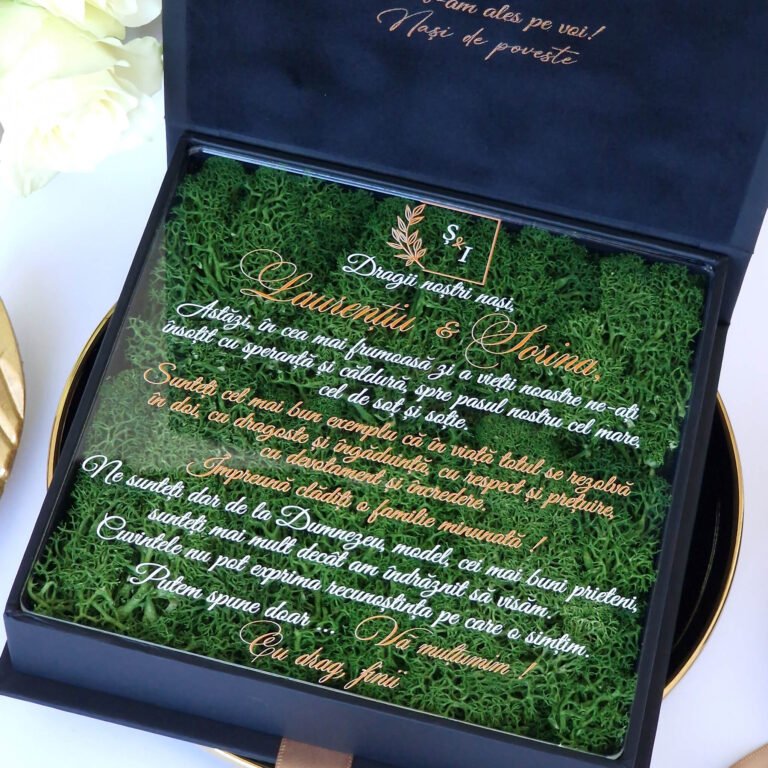 am ales pe voi!
Nași de poveste
Ș&I
Dragii noștri nași,
Laurențiu & Sorina,
Astăzi, în cea mai frumoasă zi a vieții noastre ne-ați
însoțit cu speranță și căldură, spre pasul nostru cel mare,
cel de soț și soție.
Sunteți cel mai bun exemplu că în viață totul se rezolvă
în doi, cu dragoste și îngăduință, cu respect și prețuire,
cu devotament și încredere.
Împreună clădiți o familie minunată !
Ne sunteți dar de la Dumnezeu, model, cei mai buni prieteni,
sunteți mai mult decât am îndrăznit să visăm.
Cuvintele nu pot exprima recunoștința pe care o simțim.
Putem spune doar ... Vă mulțumim !
Cu drag, finii